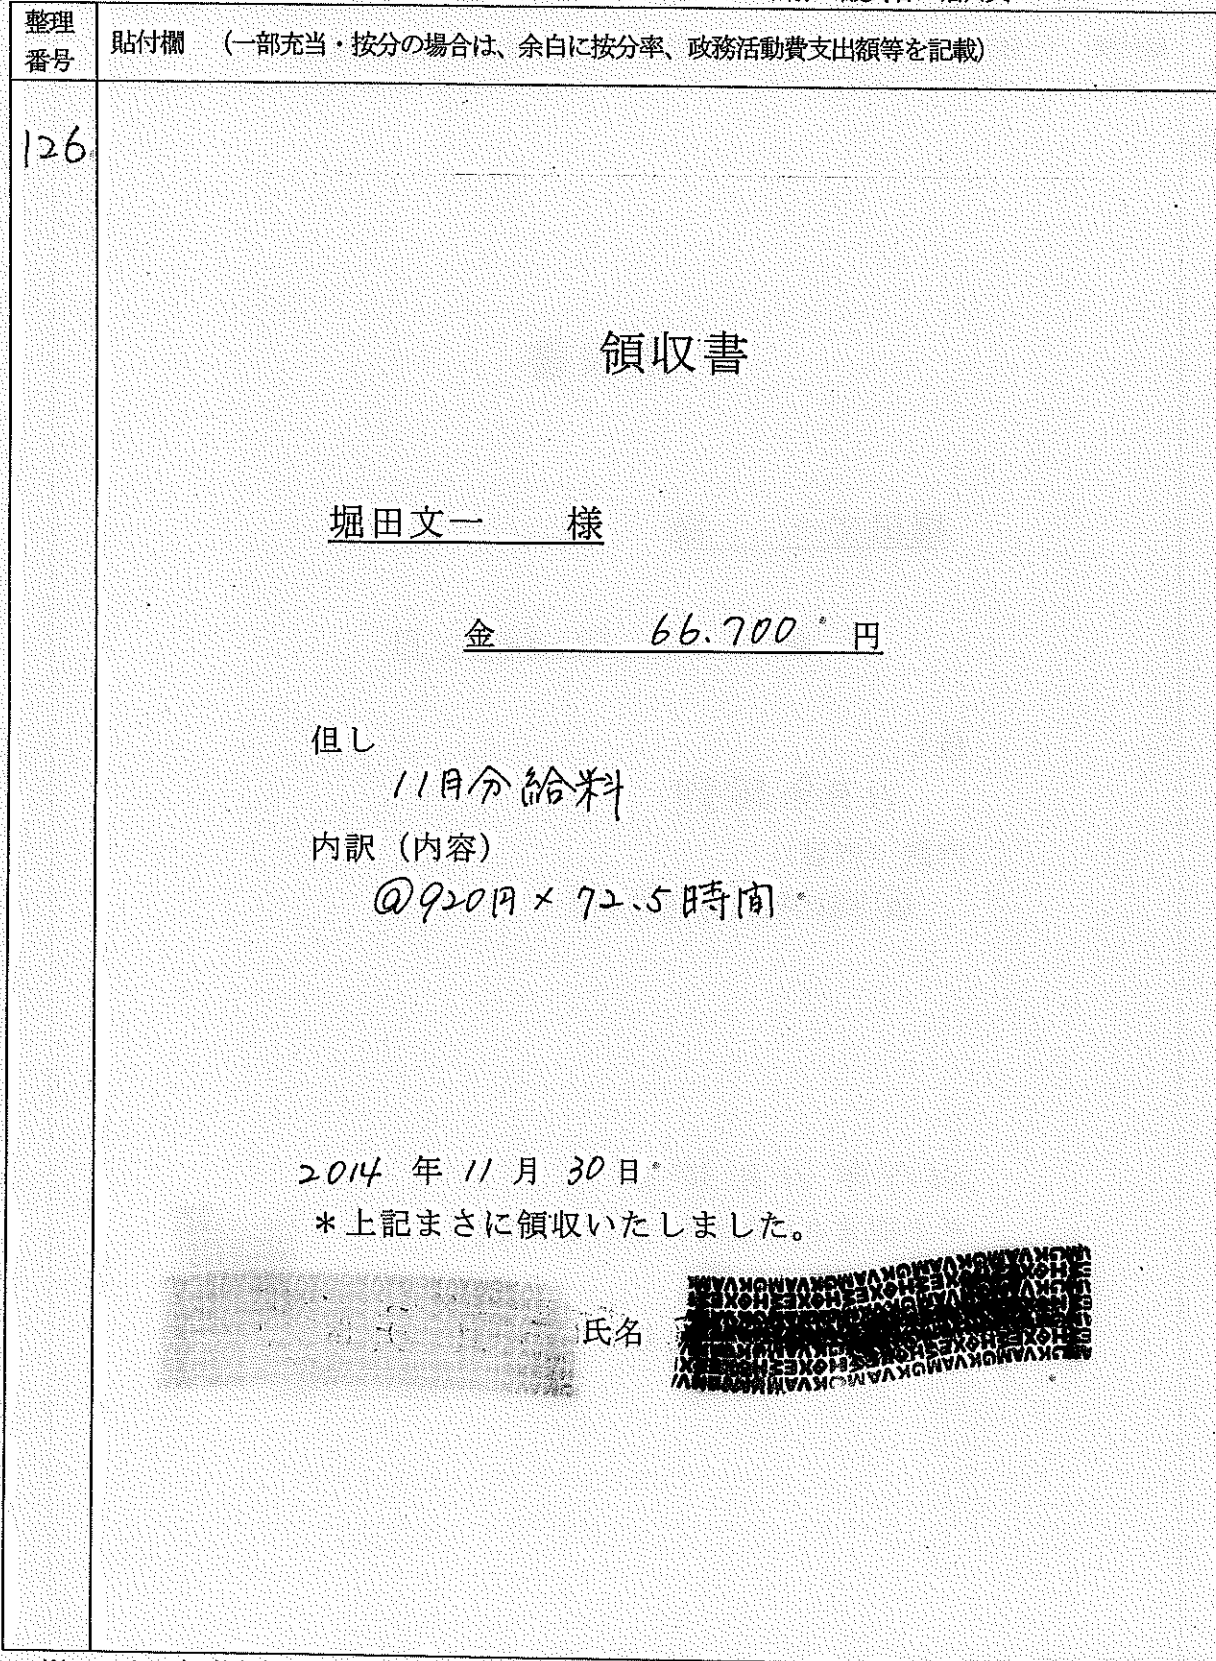 整理
番号
貼付欄 (一部充当・按分の場合は、余白に按分率、政務活動費支出額等を記載)
126
領収書
堀田文一 様
金 66.700 円
但し
11月分給料
内訳 (内容)
@920円×72.5時間
2014 年 11 月 30 日
*上記まさに領収いたしました。
氏名